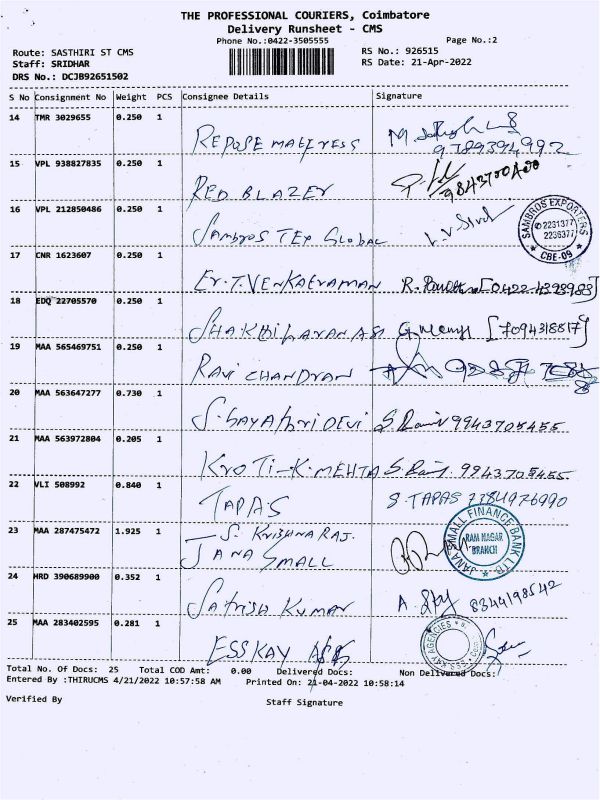 THE PROFESSIONAL COURIERS, Coimbatore
Delivery Runsheet - CMS
Phone No.:0422-3505555 Page No.:2
Route: SASTHIRI ST CMS RS No.: 926515
Staff: SRIDHAR RS Date: 21-Apr-2022
DRS No.: DCJB92651502
S No Consignment No Weight PCS Consignee Details Signature
14 TMR 3029655 0.250 1
REPOSE MATTRESS
15 VPL 938827835 0.250 1
RED BLAZER
16 VPL 212850486 0.250 1
SAMBROS TEX GLOBAL
SAMBROS EXPORTERS
2231377
2236377
CBE-09
17 CNR 1623607 0.250 1
Er. T. VENKATRAMAN
18 EDQ 22705570 0.250 1
[7094318817]
19 MAA 565469751 0.250 1
RAVI CHANDRAN
20 MAA 563647277 0.730 1
S. GAYATHRI DEVI 9943705455
21 MAA 563972804 0.205 1
K. MEHTA 9943705455
22 VLI 508992 0.840 1
TAPAS S TAPAS
23 MAA 287475472 1.925 1
S. KRISHNA RAJ.
JANA SMALL
JANA SMALL FINANCE BANK LTD.
RAM NAGAR
BRANCH
24 HRD 390689900 0.352 1
SATHISH KUMAR 8344198542
25 MAA 283402595 0.281 1
ESSKAY
ESS KAY AGENCIES
Total No. Of Docs: 25 Total COD Amt: 0.00 Delivered Docs: Non Delivered Docs:
Entered By :THIRUCMS 4/21/2022 10:57:58 AM Printed On: 21-04-2022 10:58:14
Verified By Staff Signature